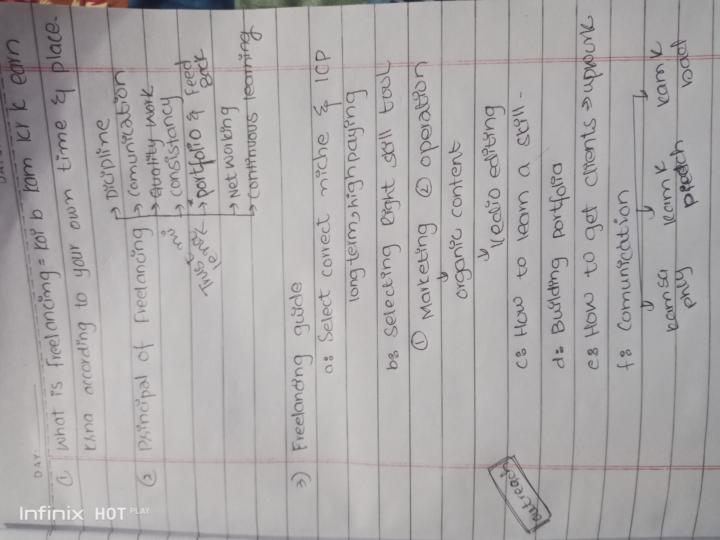 DAY:
① What is freelancing = koi b kam kr k earn
krna according to your own time & place.
② Principal of Freelancing → Dicipline
→ Comunication
→ Quality work
→ consistancy
→ portfolio & Feed
Back
→ Networking
→ Continuous learning
3) Freelancing guide
a: Select correct niche & ICP
long term, high paying
b: Selecting Right skill tool
① Marketing ② operation
organic content
Vedio editing
c: How to learn a skill -
d: Building portfolio
e: How to get clients → upwork
f: Comunication
kam sa kam k kam k
phly bad
outreach
Infinix HOT PLAY